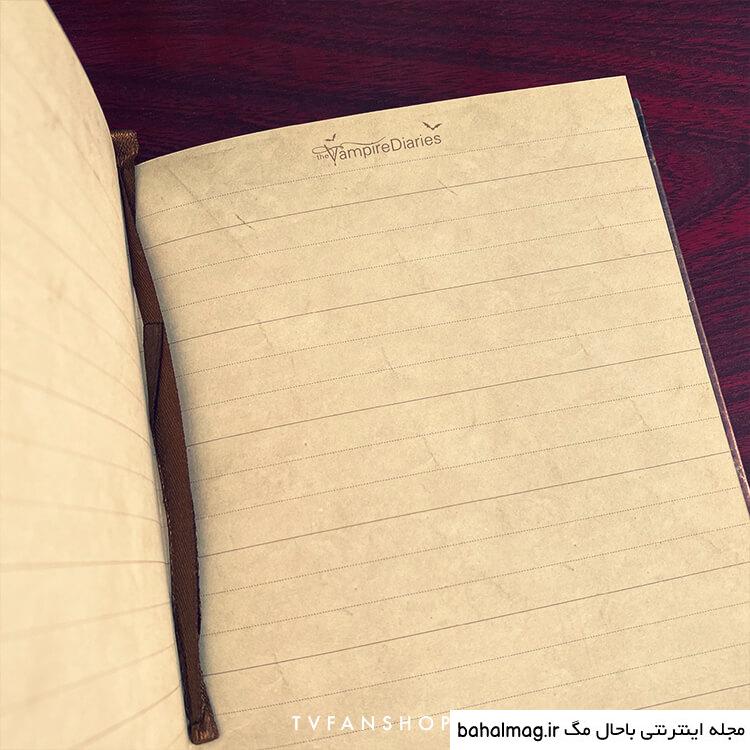 the Vampire Diaries
TVFANSHOP
مجله اینترنتی باحال مگ bahalmag.ir